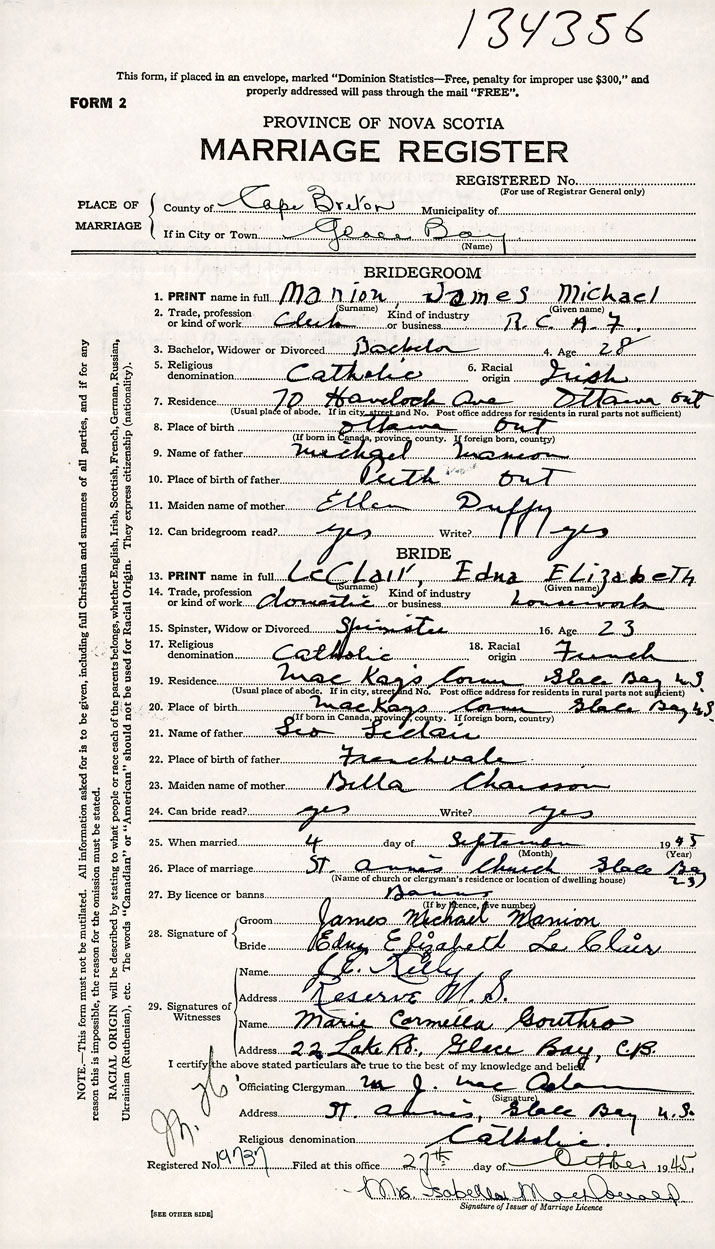 134356
This form, if placed in an envelope, marked "Dominion Statistics—Free, penalty for improper use $300," and
properly addressed will pass through the mail "FREE".
FORM 2
PROVINCE OF NOVA SCOTIA
MARRIAGE REGISTER
REGISTERED No.
(For use of Registrar General only)
PLACE OF MARRIAGE
County of Cape Breton Municipality of
If in City or Town Glace Bay
(Name)
BRIDEGROOM
1. PRINT name in full Manion, James Michael
(Surname) (Given name)
2. Trade, profession or kind of work Clerk Kind of industry or business R.C.A.F.
3. Bachelor, Widower or Divorced Bachelor 4. Age 28
5. Religious denomination Catholic 6. Racial origin Irish
7. Residence 70 Havelock Ave Ottawa Ont
(Usual place of abode. If in city, street and No. Post office address for residents in rural parts not sufficient)
8. Place of birth Ottawa Ont
(If born in Canada, province, county. If foreign born, country)
9. Name of father Michael Manion
10. Place of birth of father Perth Ont
11. Maiden name of mother Ellen Duffy
12. Can bridegroom read? yes Write? yes
BRIDE
13. PRINT name in full LeClair, Edna Elizabeth
(Surname) (Given name)
14. Trade, profession or kind of work domestic Kind of industry or business housework
15. Spinster, Widow or Divorced Spinster 16. Age 23
17. Religious denomination Catholic 18. Racial origin French
19. Residence MacKay's Corner Glace Bay N.S.
(Usual place of abode. If in city, street and No. Post office address for residents in rural parts not sufficient)
20. Place of birth MacKays Corner Glace Bay N.S.
(If born in Canada, province, county. If foreign born, country)
21. Name of father Leo Leclair
22. Place of birth of father Frenchvale
23. Maiden name of mother Bella Chiasson
24. Can bride read? yes Write? yes
25. When married 4 day of September 1945
(Month) (Year)
26. Place of marriage St. Anne's Church Glace Bay
(Name of church or clergyman's residence or location of dwelling house)
27. By licence or banns Banns
(If by licence, give number)
28. Signature of Groom James Michael Manion
Bride Edna Elizabeth Le Clair
29. Signatures of Witnesses
Name Kelly
Address Reserve N.S.
Name Marie Carmella Gouthro
Address 22 Lake Rd., Glace Bay, C.B.
I certify the above stated particulars are true to the best of my knowledge and belief.
Officiating Clergyman M J. Mac Adam
(Signature)
Address St. Anne's, Glace Bay N.S.
Religious denomination Catholic.
Registered No. 19737 Filed at this office 27th day of October 1945
Mrs. Isabella MacDonald
Signature of Issuer of Marriage Licence
[SEE OTHER SIDE]
NOTE.—This form must not be mutilated. All information asked for is to be given, including full Christian and surnames of all parties, and if for any
reason this is impossible, the reason for the omission must be stated.
RACIAL ORIGIN will be described by stating to what people or race each of the parents belongs, whether English, Irish, Scottish, French, German, Russian,
Ukrainian (Ruthenian), etc. The words "Canadian" or "American" should not be used for Racial Origin. They express citizenship (nationality).